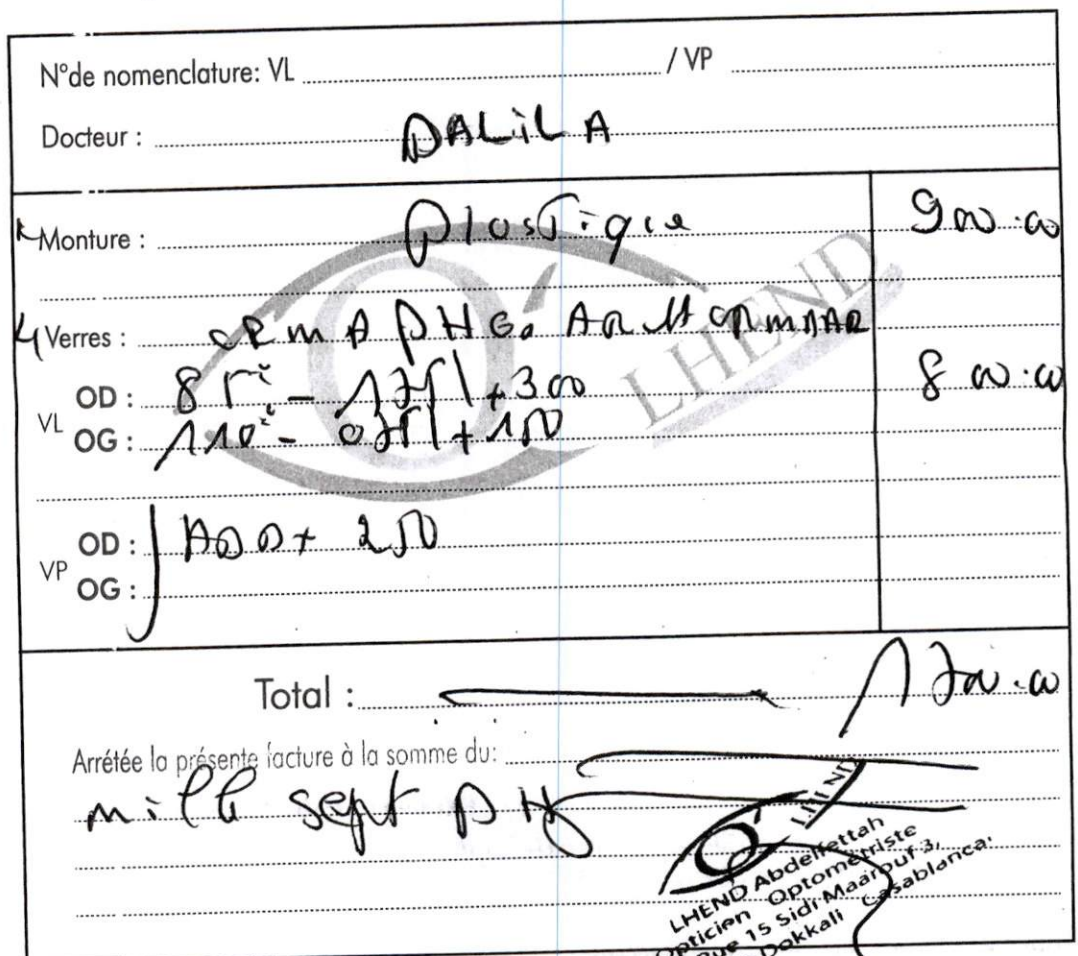 N°de nomenclature: VL / VP
Docteur : DALiLA
Monture : Plastique 900.00
Verres : ORMA PHG. AR
800.00
VL
OD : 85° - 175 | + 300
OG : 110° - 075 | + 150
VP
OD : ADD + 250
OG :
Total : 1700.00
Arrétée la présente facture à la somme du:
mille sept DH
LHEND
LHEND
LHEND Abdelfettah
Opticien Optométriste
Rue 15 Sidi Maarouf 3,
Dokkali Casablanca.